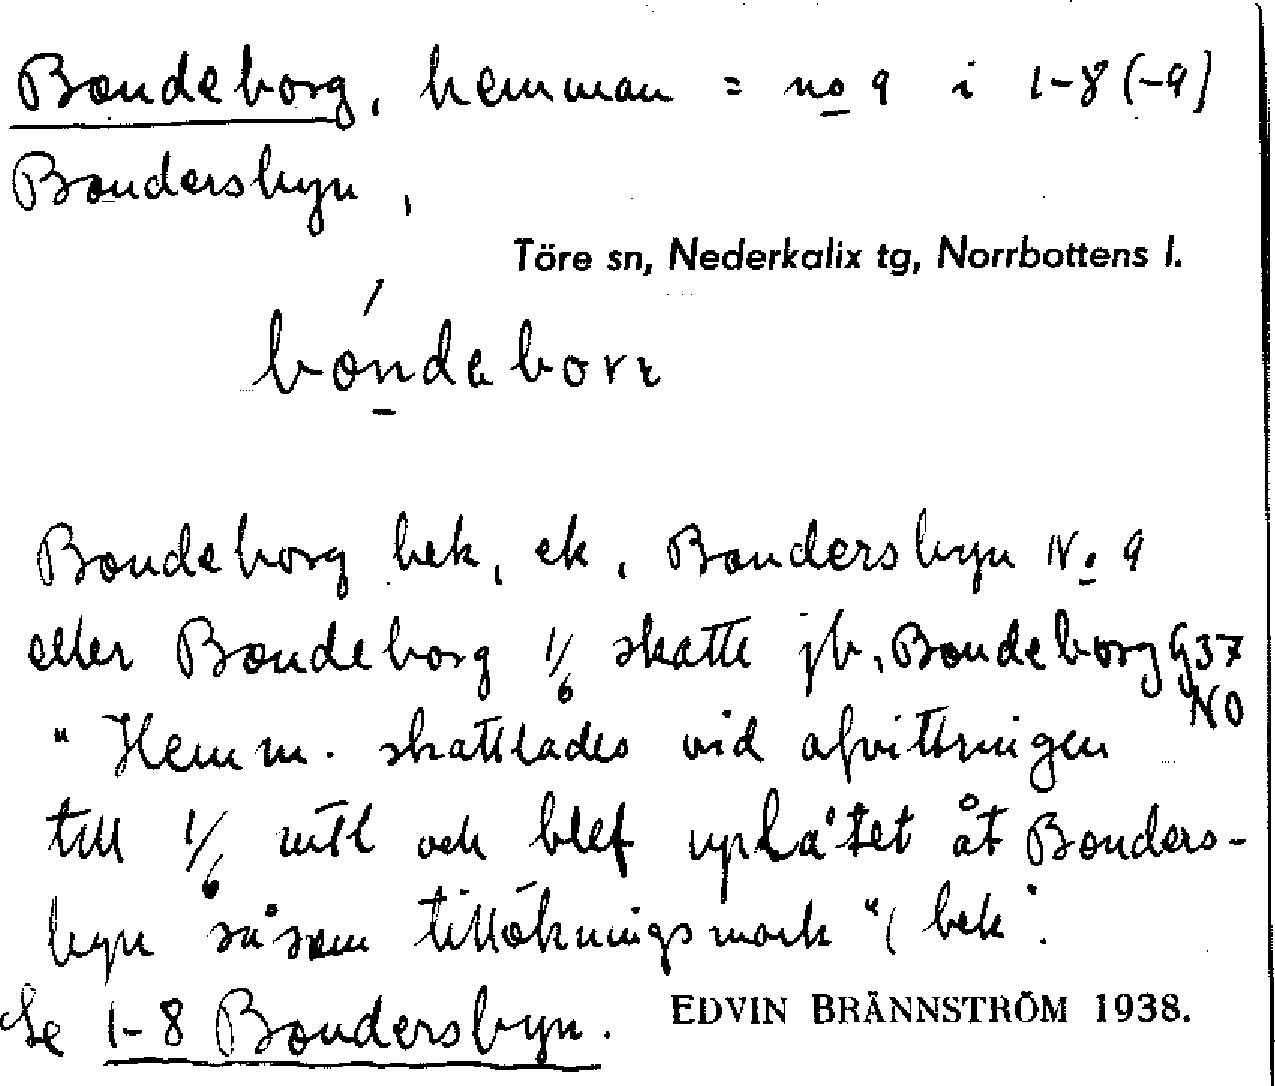 Bondeborg, hemman = no 9 i 1-8 (-9)
Bondersbyn,
Töre sn, Nederkalix tg, Norrbottens l.
bóndeborr
Bondeborg bek, ek, Bondersbyn No 9
eller Bondeborg 1/6 skatte jb, Bondeborg G37
NO
"Hemm. skattlades vid afvittringen
till 1/6 mtl och blef uplåtet åt Bonders-
byn såsom tillökningsmark" (bek.
Se 1-8 Bondersbyn.
EDVIN BRÄNNSTRÖM 1938.